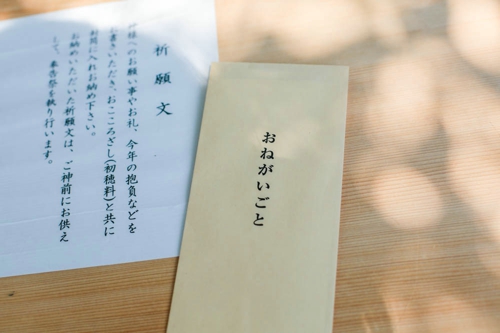 祈願文
様へのお願い事やお礼、今年の抱負などを
お書きいただき、おこころざし(初穂料)と共に
封筒に入れお納め下さい。
お納めいただいた祈願文は、ご神前にお供え
して、奉告祭を執り行います。
おねがいごと